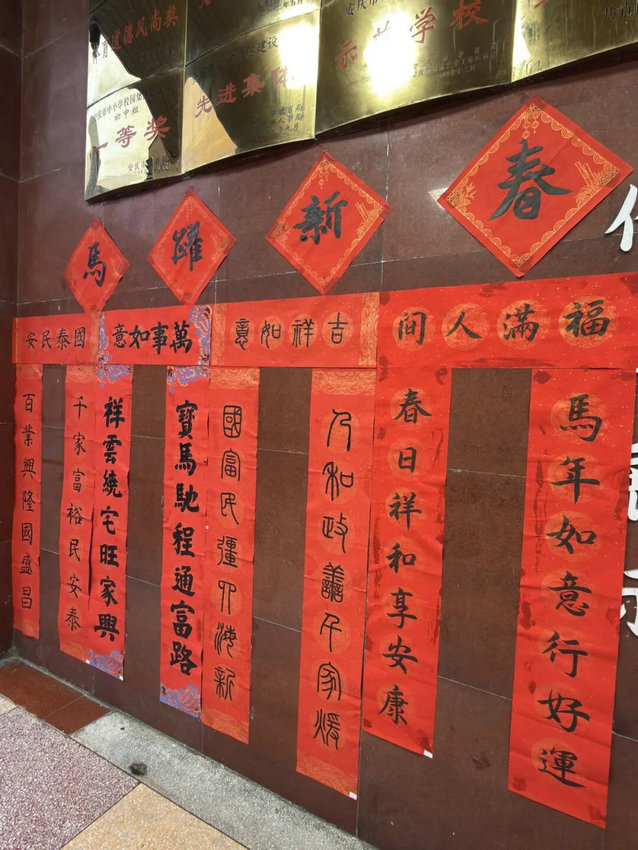 育道德风尚奖
示范学校
先进集体
初中组
一等奖
馬躍新春
福滿人間
馬年如意行好運
春日祥和享安康
吉祥如意
人和政譱千家煖
國富民彊四海新
萬事如意
寶馬馳程通富路
祥雲繞宅旺家興
國泰民安
千家富裕民安泰
百業興隆國盛昌